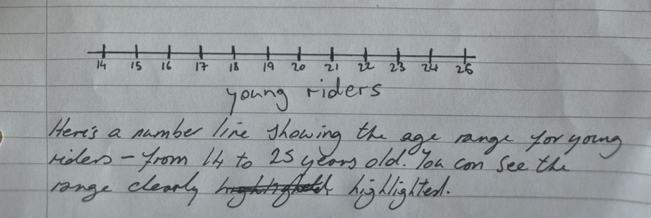 14 15 16 17 18 19 20 21 22 23 24 25
young riders
Here's a number line showing the age range for young
riders – from 14 to 25 years old. You can see the
range clearly highlighted.